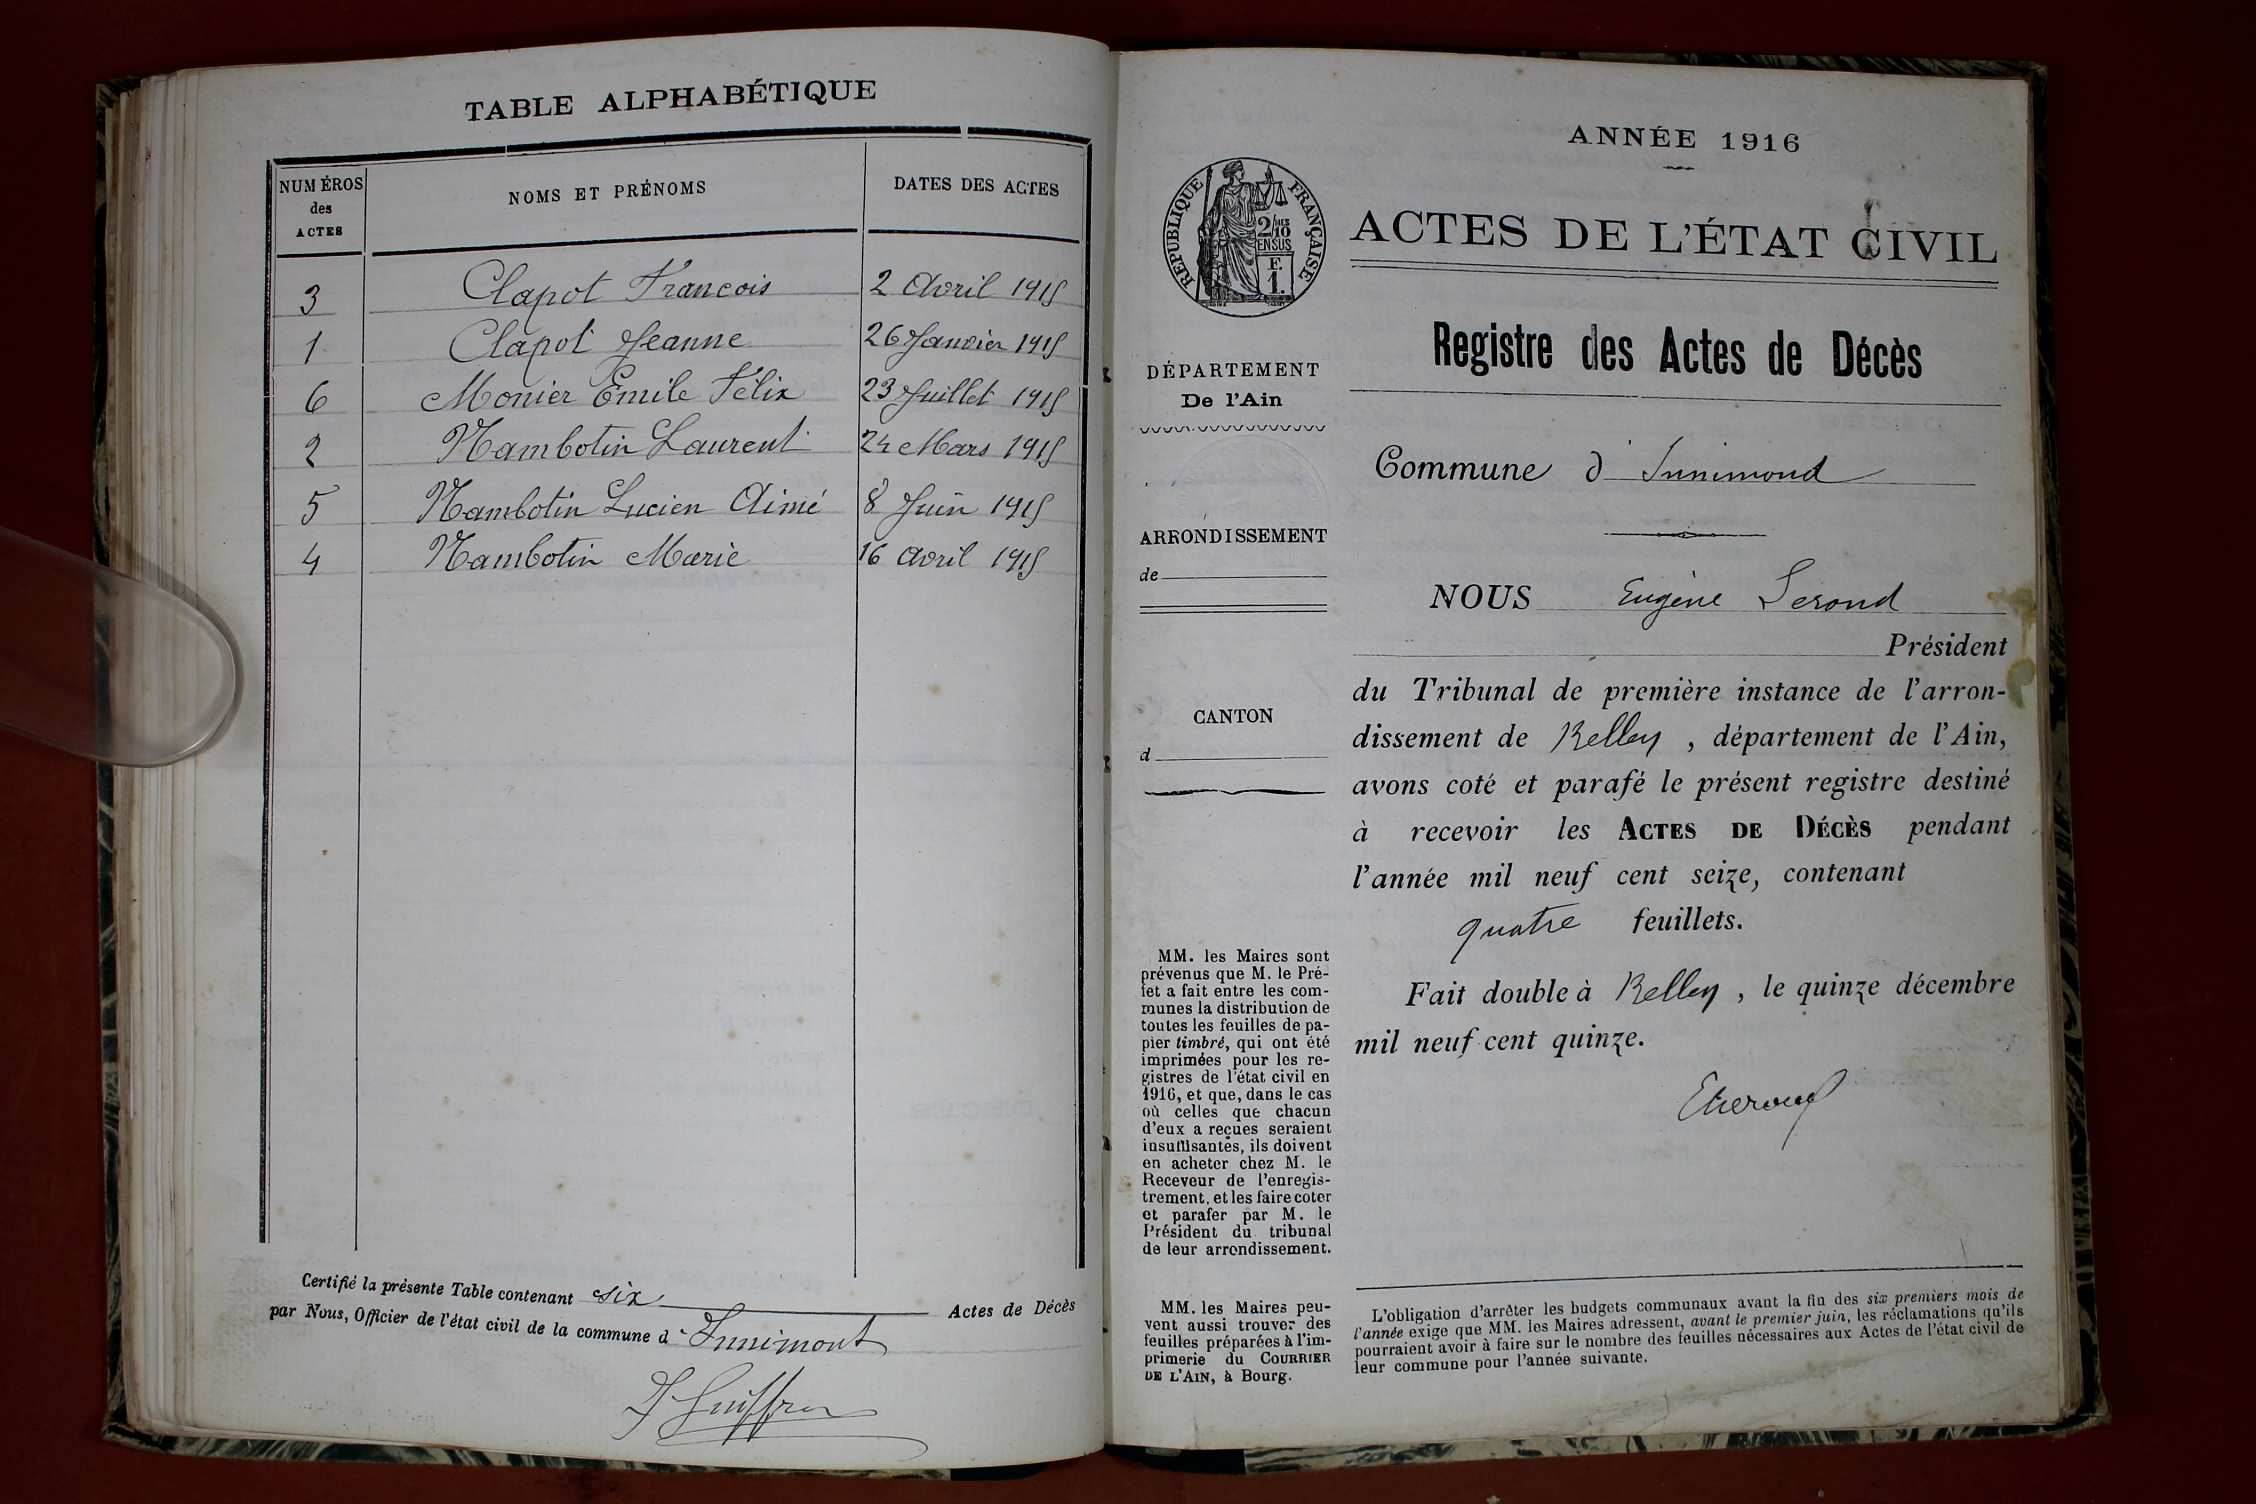 TABLE ALPHABÉTIQUE
NUMÉROS des ACTES
NOMS ET PRÉNOMS
DATES DES ACTES
3 Clapot Francois 2 Avril 1915
1 Clapot Jeanne 26 Janvier 1915
6 Monier Emile Félix 23 Juillet 1915
2 Nambotin Laurent 24 Mars 1915
5 Nambotin Lucien Aimé 8 Juin 1915
4 Nambotin Marie 16 Avril 1915
Certifié la présente Table contenant six Actes de Décès
par Nous, Officier de l'état civil de la commune d'Innimont
ANNÉE 1916
RÉPUBLIQUE FRANÇAISE
2/10 MES
EN SUS
F.
1.
ACTES DE L'ÉTAT CIVIL
Registre des Actes de Décès
DÉPARTEMENT
De l'Ain
ARRONDISSEMENT
de
CANTON
d
Commune d'Innimond
NOUS Eugène
Président
du Tribunal de première instance de l'arron-
dissement de Belley, département de l'Ain,
avons coté et parafé le présent registre destiné
à recevoir les ACTES DE DÉCÈS pendant
l'année mil neuf cent seize, contenant
quatre feuillets.
Fait double à Belley, le quinze décembre
mil neuf cent quinze.
MM. les Maires sont
prévenus que M. le Pré-
fet a fait entre les com-
munes la distribution de
toutes les feuilles de pa-
pier timbré, qui ont été
imprimées pour les re-
gistres de l'état civil en
1916, et que, dans le cas
où celles que chacun
d'eux a reçues seraient
insuffisantes, ils doivent
en acheter chez M. le
Receveur de l'enregis-
trement, et les faire coter
et parafer par M. le
Président du tribunal
de leur arrondissement.
MM. les Maires peu-
vent aussi trouver des
feuilles préparées à l'im-
primerie du COURRIER
DE L'AIN, à Bourg.
L'obligation d'arrêter les budgets communaux avant la fin des six premiers mois de
l'année exige que MM. les Maires adressent, avant le premier juin, les réclamations qu'ils
pourraient avoir à faire sur le nombre des feuilles nécessaires aux Actes de l'état civil de
leur commune pour l'année suivante.